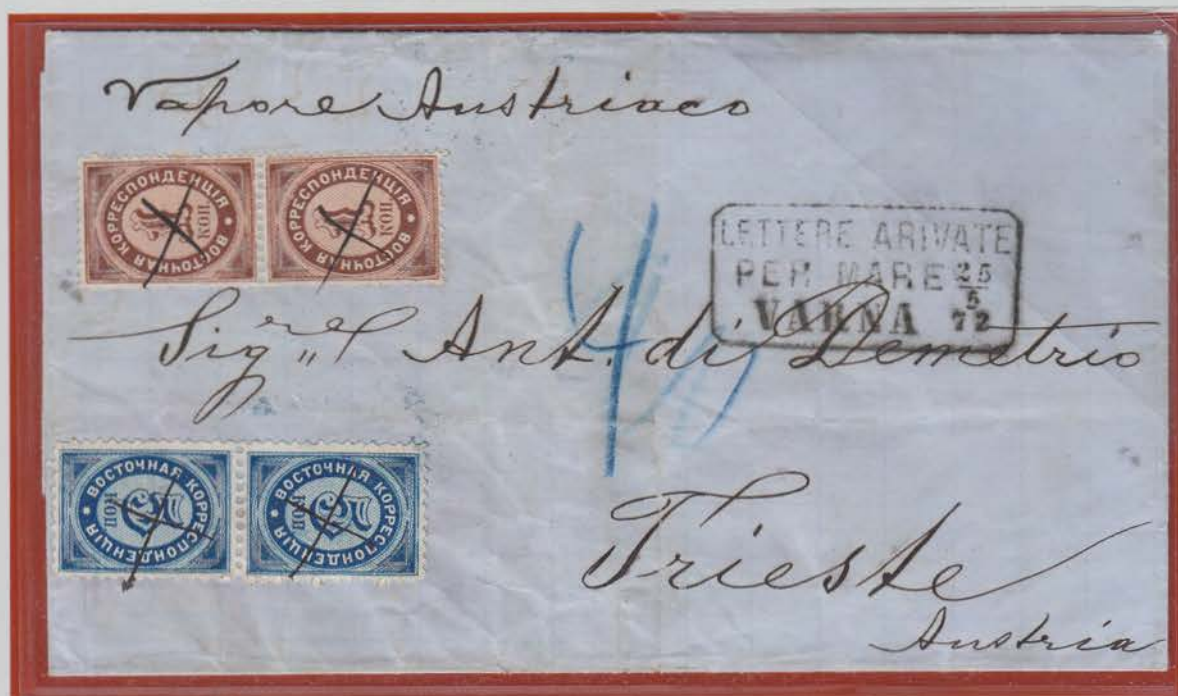 Vapore Austriaco
ВОСТОЧНАЯ КОРРЕСПОНДЕНЦІЯ * 1 КОП
ВОСТОЧНАЯ КОРРЕСПОНДЕНЦІЯ * 1 КОП
LETTERE ARIVATE
PER MARE 25/5
VARNA 72
4
Sig.re Ant. di Demetrio
ВОСТОЧНАЯ КОРРЕСПОНДЕНЦІЯ * 5 КОП
ВОСТОЧНАЯ КОРРЕСПОНДЕНЦІЯ * 5 КОП
Trieste
Austria